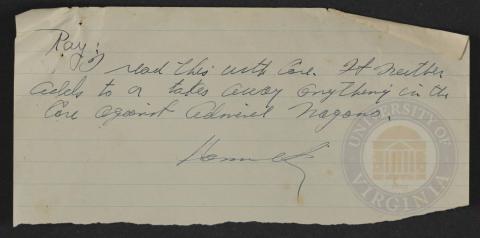 Ray:
I read this with care. It neither
adds to or takes away anything in the
Case against Admiral Nagano.
UNIVERSITY OF VIRGINIA